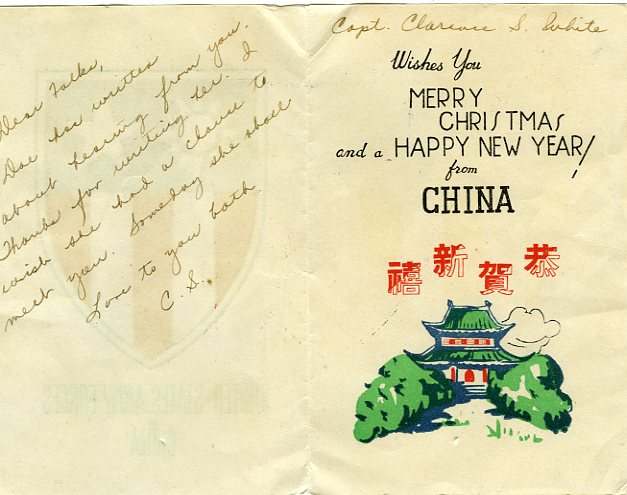 Dear Folks,
has written
about hearing from you.
Thanks for writing her. I
wish she had a chance to
meet you. Someday she shall
Love to you both
C. S.
Capt. Clarence S. White
Wishes You
MERRY
CHRISTMAS
and a HAPPY NEW YEAR!
from
CHINA
恭賀新禧